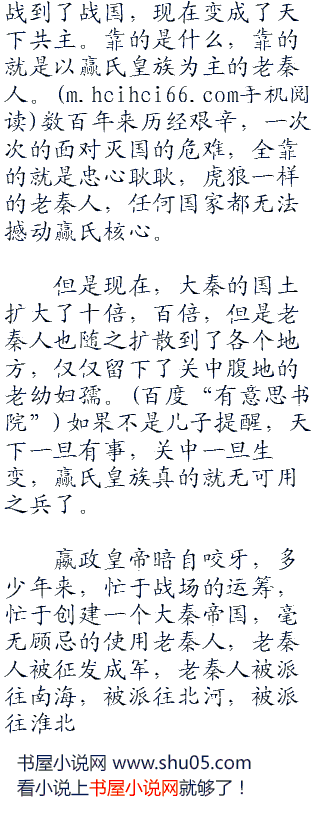 战到了战国，现在变成了天
下共主。靠的是什么，靠的
就是以嬴氏皇族为主的老秦
人。(m.hcihci66.com手机阅
读)数百年来历经艰辛，一次
次的面对灭国的危难，全靠
的就是忠心耿耿，虎狼一样
的老秦人，任何国家都无法
撼动嬴氏核心。
但是现在，大秦的国土
扩大了十倍，百倍，但是老
秦人也随之扩散到了各个地
方，仅仅留下了关中腹地的
老幼妇孺。(百度“有意思书
院”)如果不是儿子提醒，天
下一旦有事，关中一旦生
变，嬴氏皇族真的就无可用
之兵了。
嬴政皇帝暗自咬牙，多
少年来，忙于战场的运筹，
忙于创建一个大秦帝国，毫
无顾忌的使用老秦人，老秦
人被征发成军，老秦人被派
往南海，被派往北河，被派
往淮北
书屋小说网 www.shu05.com
看小说上书屋小说网就够了！